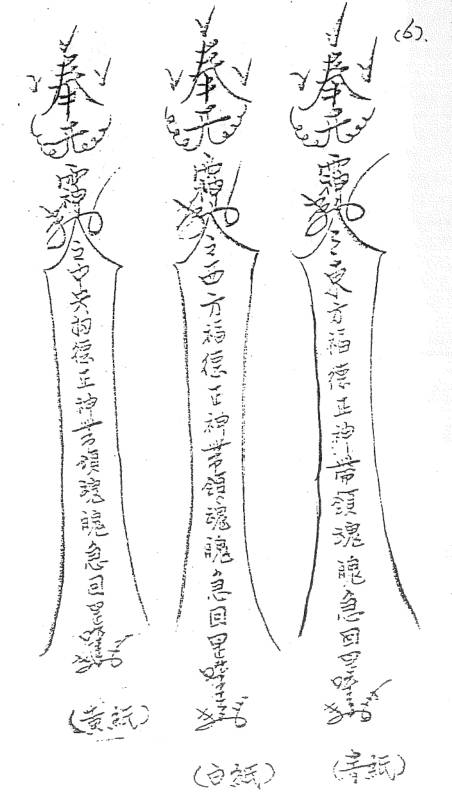 (6).
奉
元
令東方福德正神帶領魂魄急回
(青紙)
奉
元
令西方福德正神帶領魂魄急回
(白紙)
奉
元
令中央福德正神帶領魂魄急回
(黃紙)